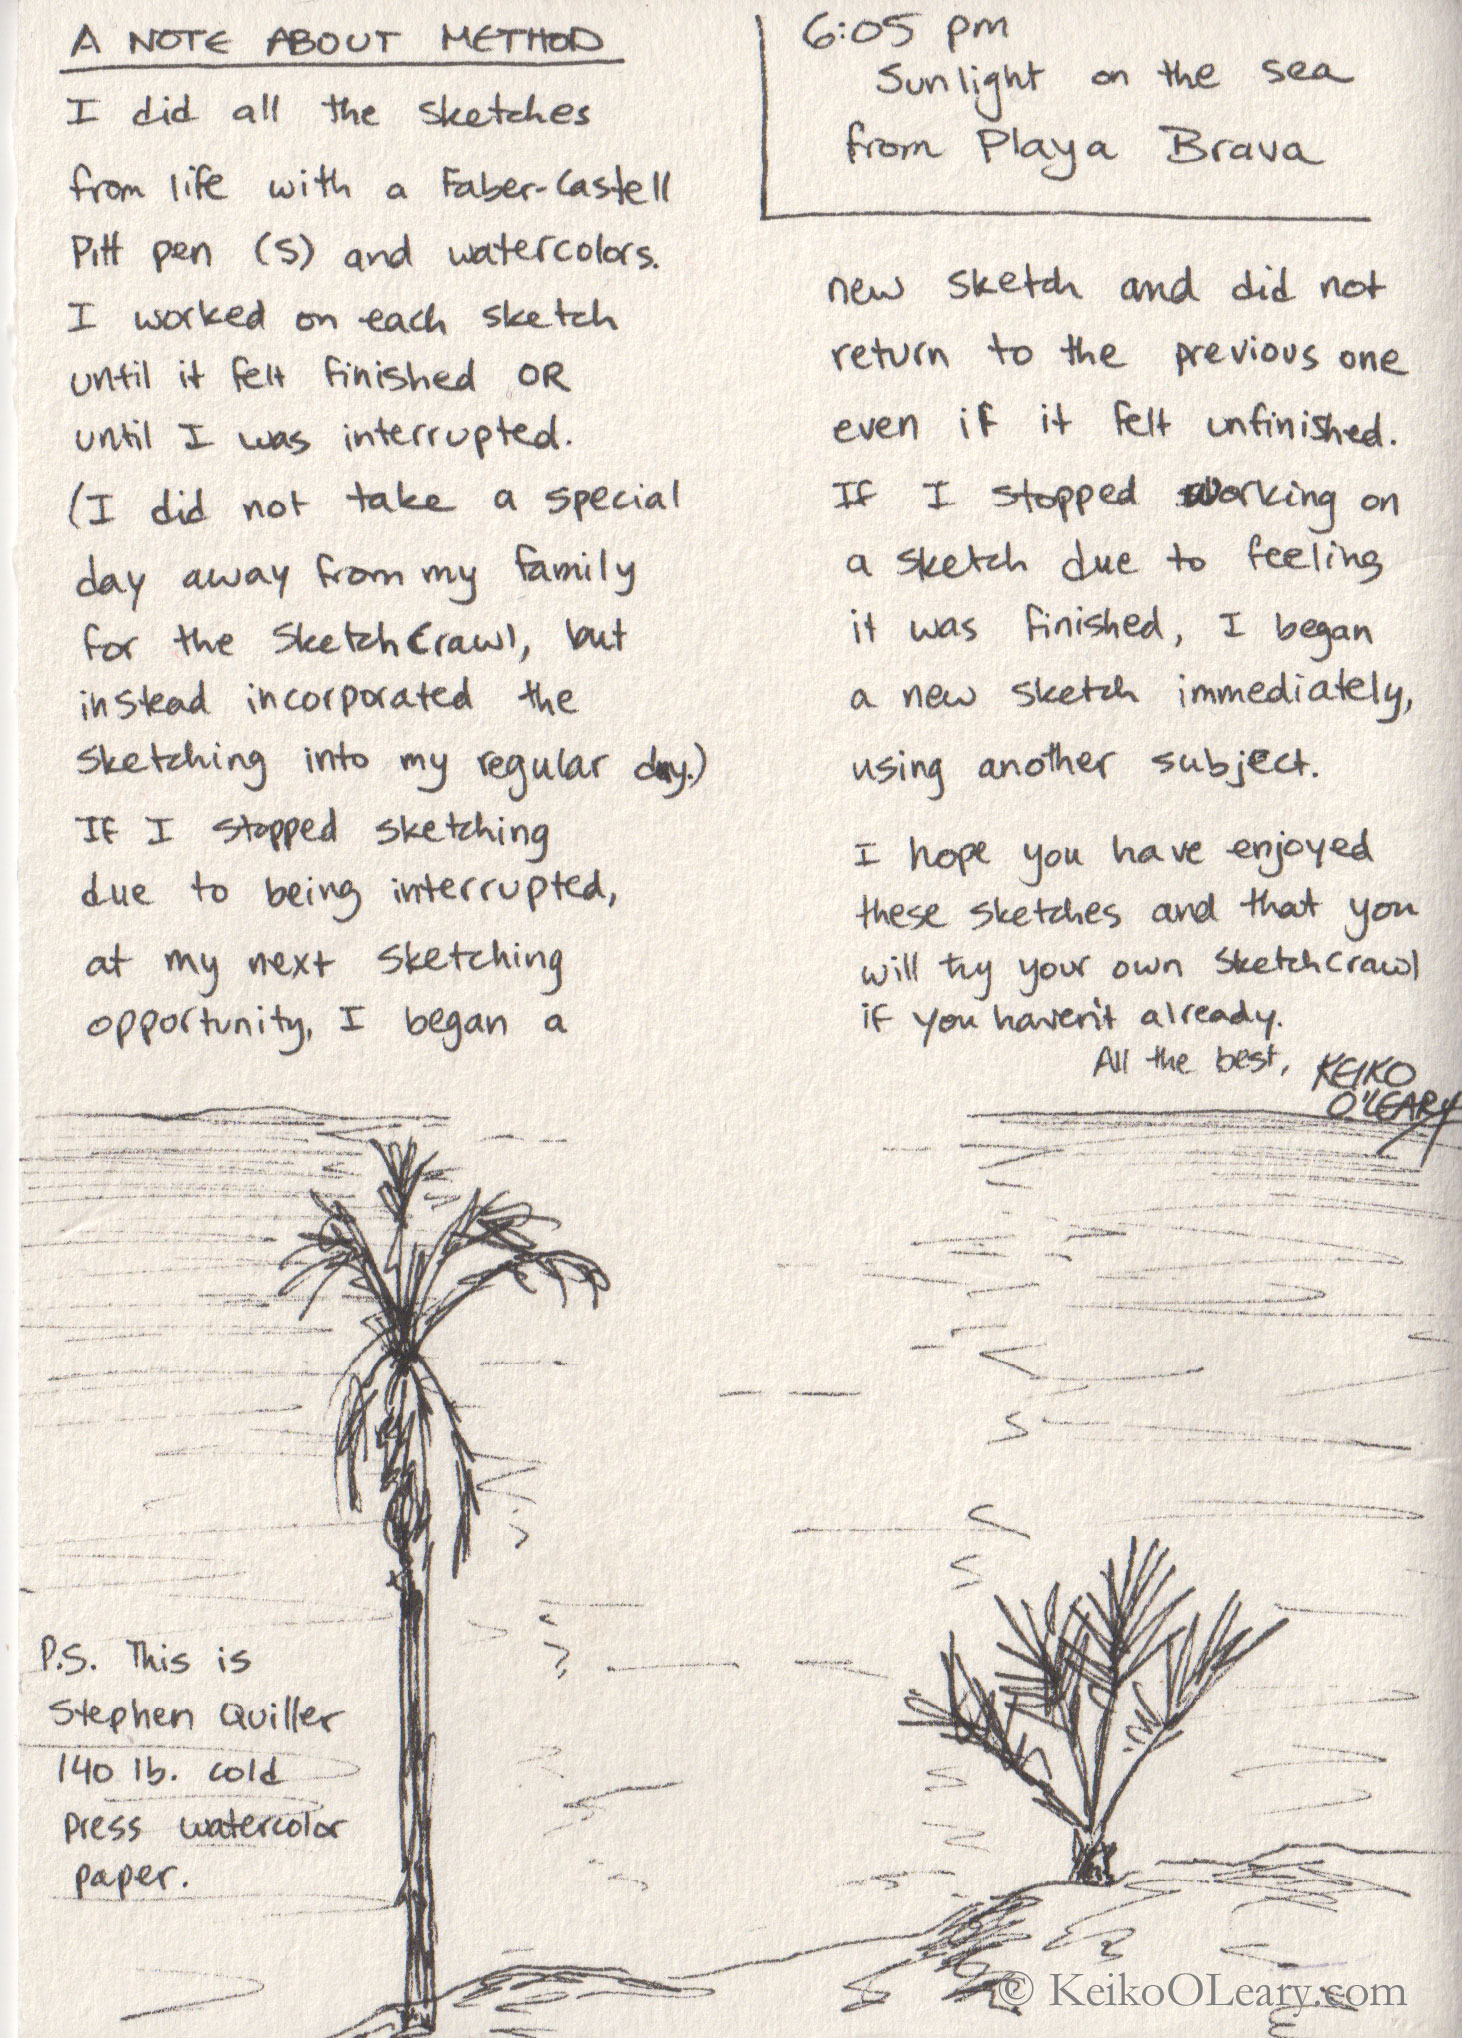 A NOTE ABOUT METHOD
I did all the sketches
from life with a Faber-Castell
Pitt pen (S) and watercolors.
I worked on each sketch
until it felt finished OR
until I was interrupted.
(I did not take a special
day away from my family
for the SketchCrawl, but
instead incorporated the
sketching into my regular day.)
If I stopped sketching
due to being interrupted,
at my next sketching
opportunity, I began a
6:05 pm
Sunlight on the sea
from Playa Brava
new sketch and did not
return to the previous one
even if it felt unfinished.
If I stopped working on
a sketch due to feeling
it was finished, I began
a new sketch immediately,
using another subject.
I hope you have enjoyed
these sketches and that you
will try your own SketchCrawl
if you haven't already.
All the best, KEIKO
O'LEARY
P.S. This is
Stephen Quiller
140 lb. cold
press watercolor
paper.
© KeikoOLeary.com